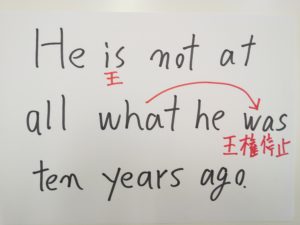 He is not at
王
all what he was
王権停止
ten years ago.